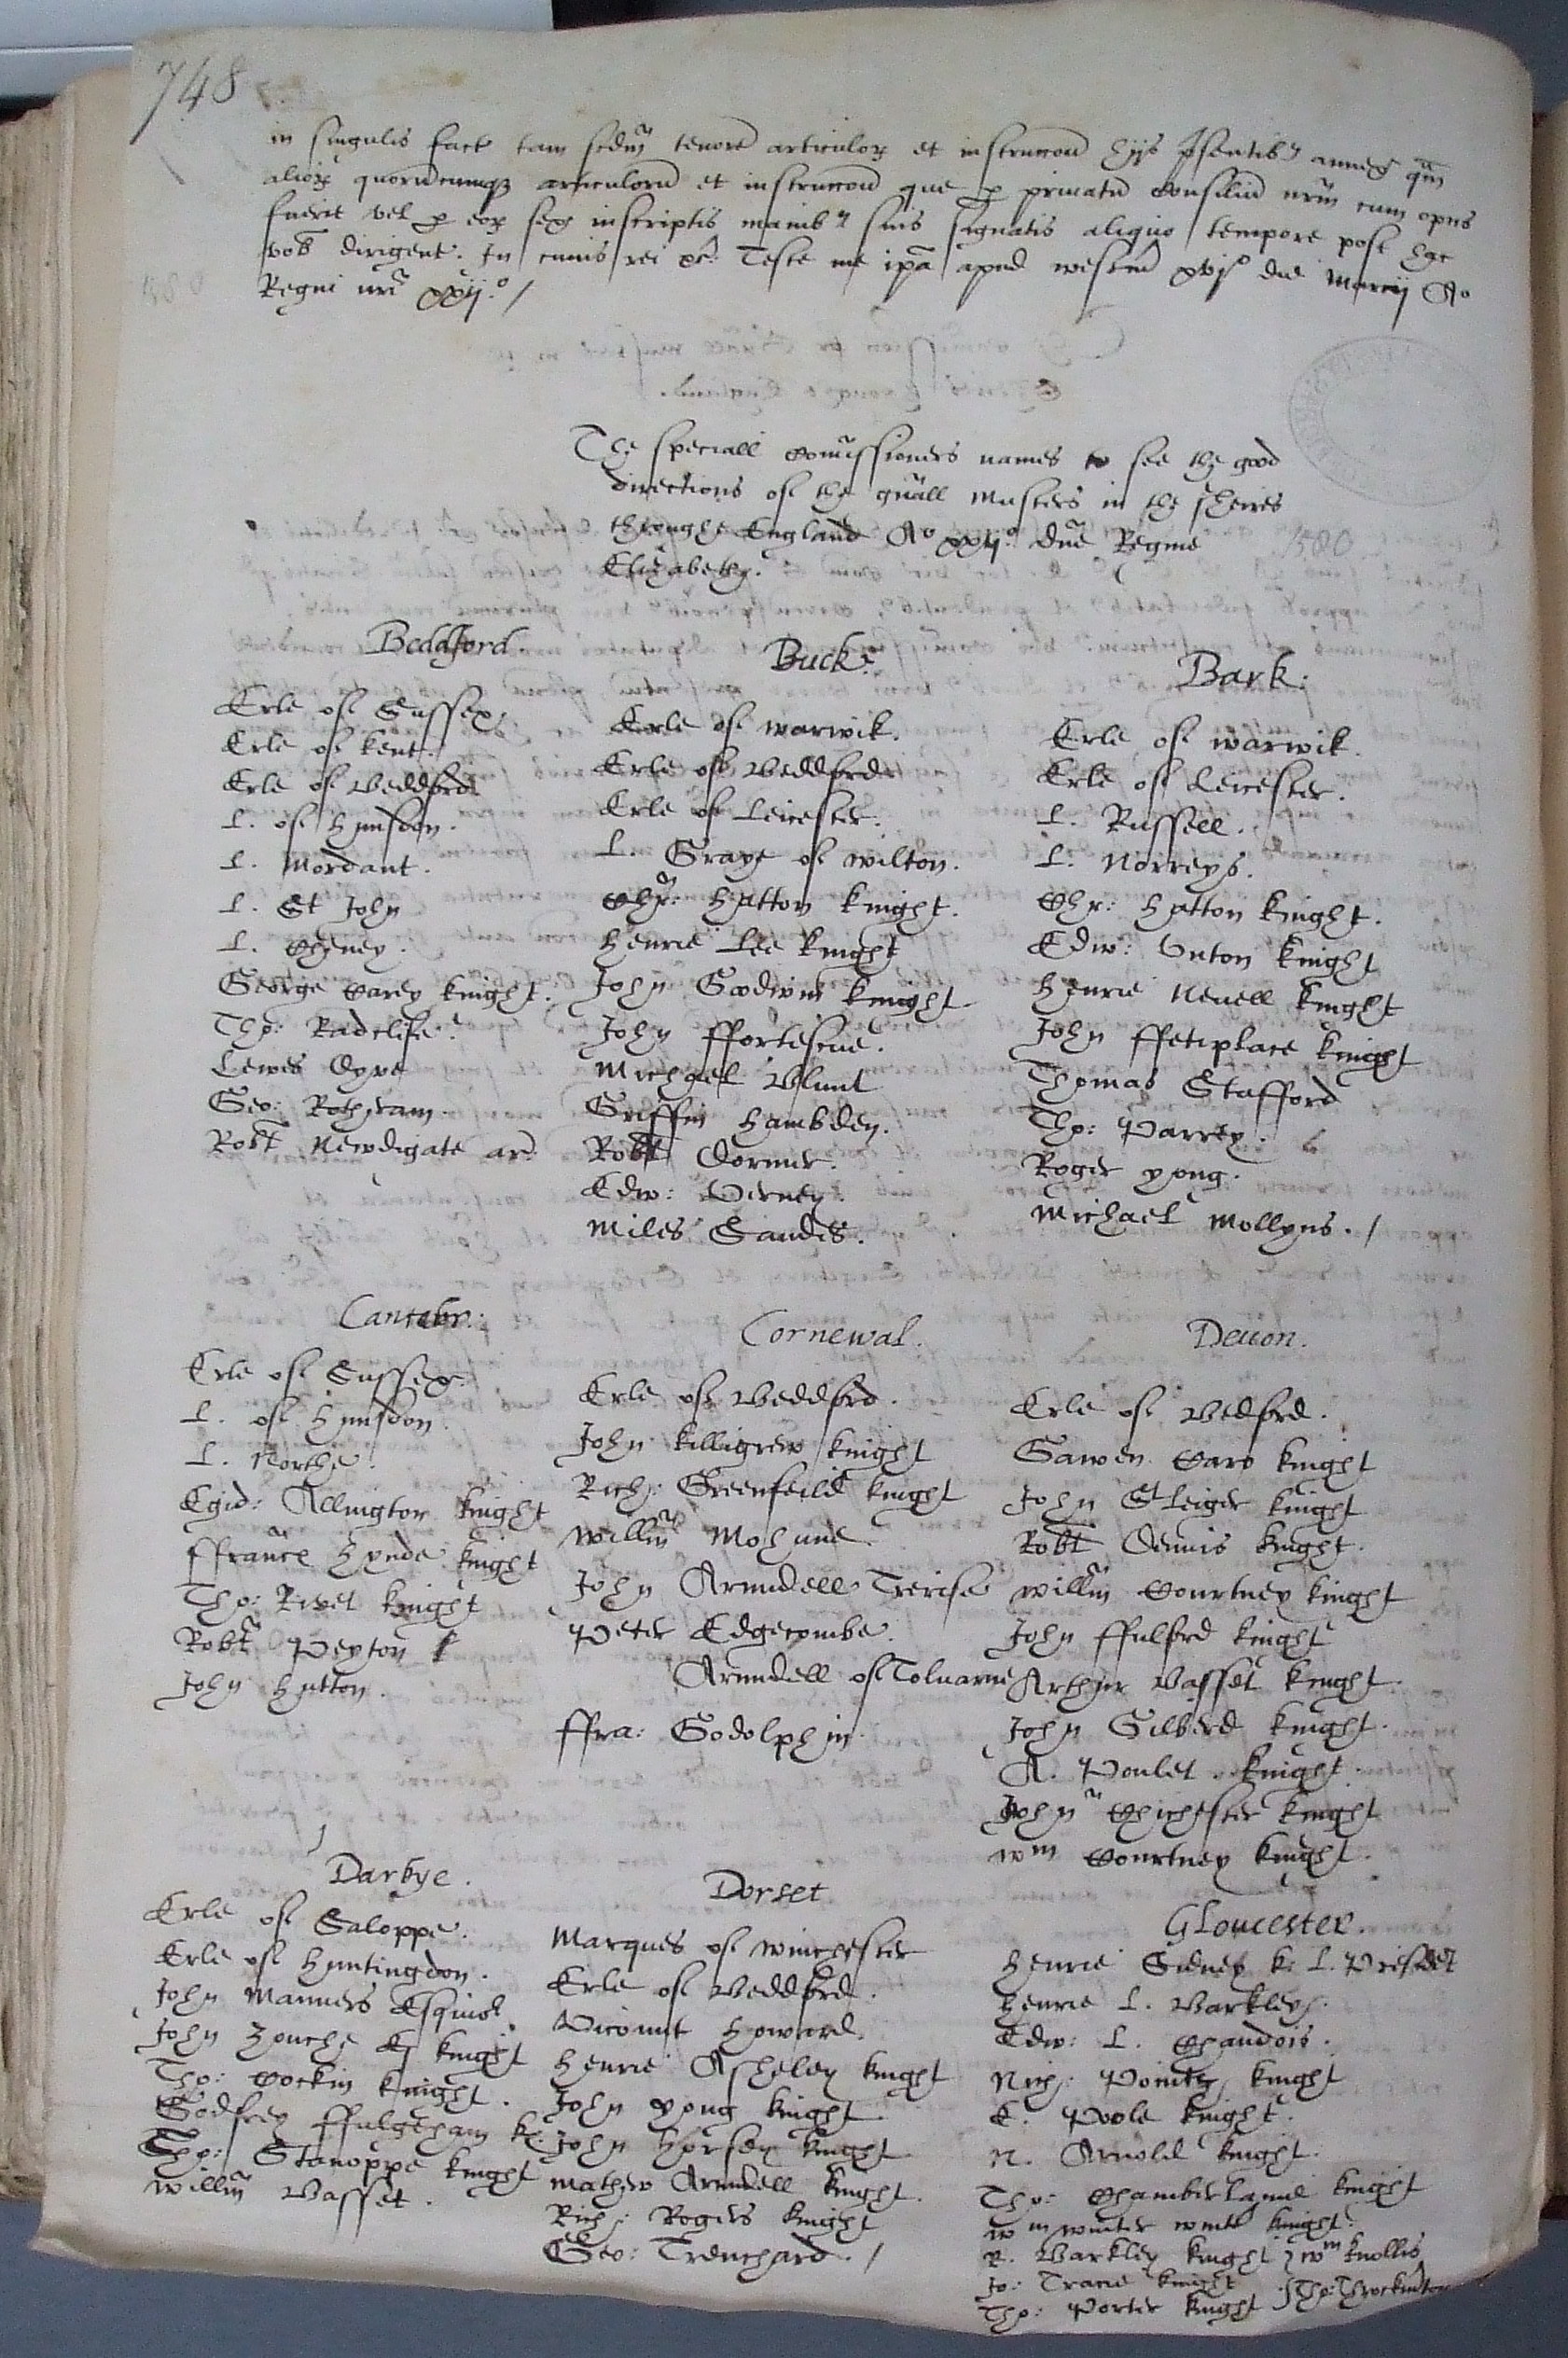 748
in singulis fact tam scdm tenore articulor et instruccon hijs psentib9 annex qm
alior quorumcumq articulorum et instruccon que p privatu Consiliu nrm cum opus
fuerit vel p eor sex inscriptis manib9 suis signatis aliquo tempore post hac
vob dirigent. In cuius rei &c. Teste me ipa apud westm xvj° die Marcij A°
Regni nri xxij.° /
The speciall Comissioners names to see the good
directions of the gnall Musters in the sheires
throughe England A° xxij° dne Regine
Elizabethe.
1580
Beddford
Erle of Sussex.
Erle of Kent.
Erle of Beddford
L. of Hunsdon.
L. Mordant.
L. St John
L. Cheney.
George Carey knight.
Tho: Radclife.
Lewes Dyve
Geo: Rotheram.
Robt Newdigate ar.
Buck:
Erle of Warwik.
Erle of Beddford
Erle of Leicester.
L. Graye of Wilton.
Chr: Hatton knight.
Henrie Lee knight
John Goodwin knight
John ffortescue.
Michael Blunt
Griffin Hambden.
Robt Dormer.
Edw: Verney.
Miles Sandes.
Bark:
Erle of Warwik.
Erle of Leicester.
L. Russell.
L. Norreys.
Chr: Hatton knight.
Edw: Unton knight
Henrie Nevell knight
John ffetiplace knight
Thomas Stafford
Tho: Parrey.
Roger Yong.
Michael Mollyns. /
Cantabr:
Erle of Sussex.
L. of Hunsdon.
L. Northe.
Egid: Allington knight
ffrance Hynde knight
Tho: Rivet knight
Robt Peyton
John Hutton.
Cornewal.
Erle of Beddford.
John Killigrew knight
Rich: Greenfeild knight
Willm Mohune.
John Arundell Trerise
Peter Edgecombe.
Arundell of Tolvarne
ffra: Godolphin.
Deuon.
Erle of Bedford.
Gawen Caro knight
John St Leiger knight
Robt Dennis knight.
Willm Courtney knight
John ffulford knight
Arthur Basset knight.
John Gilberd knight.
A. Poulet knight.
John Chichester knight
Wm Courtney knight.
Darbye.
Erle of Saloppe.
Erle of Huntingdon.
John Manners Esquior.
John Zouche knight
Tho: Cockin knight.
Godfrey ffulgeham k.
Tho: Stanoppe knight
Willm Basset.
Dorset
Marques of Winchester
Erle of Beddford.
Vicount Howard.
Henrie Asheley knight
John Yong knight.
John Horsey knight
Mathew Arundell knight.
Rich: Rogers knight
Geo: Trenchard. /
Gloucester.
Henrie Sidney k. L. Presidet
Henrie L. Barkley.
Edw: L. Chandois.
Nich: Pointz knight
E. Poole knight.
N. Arnold knight.
Tho: Chamberlayne knight
Wm Winter knight.
R. Barkley knight } Wm Knollis
Jo: Tracie knight } Tho: Throckmton
Tho: Porter knight